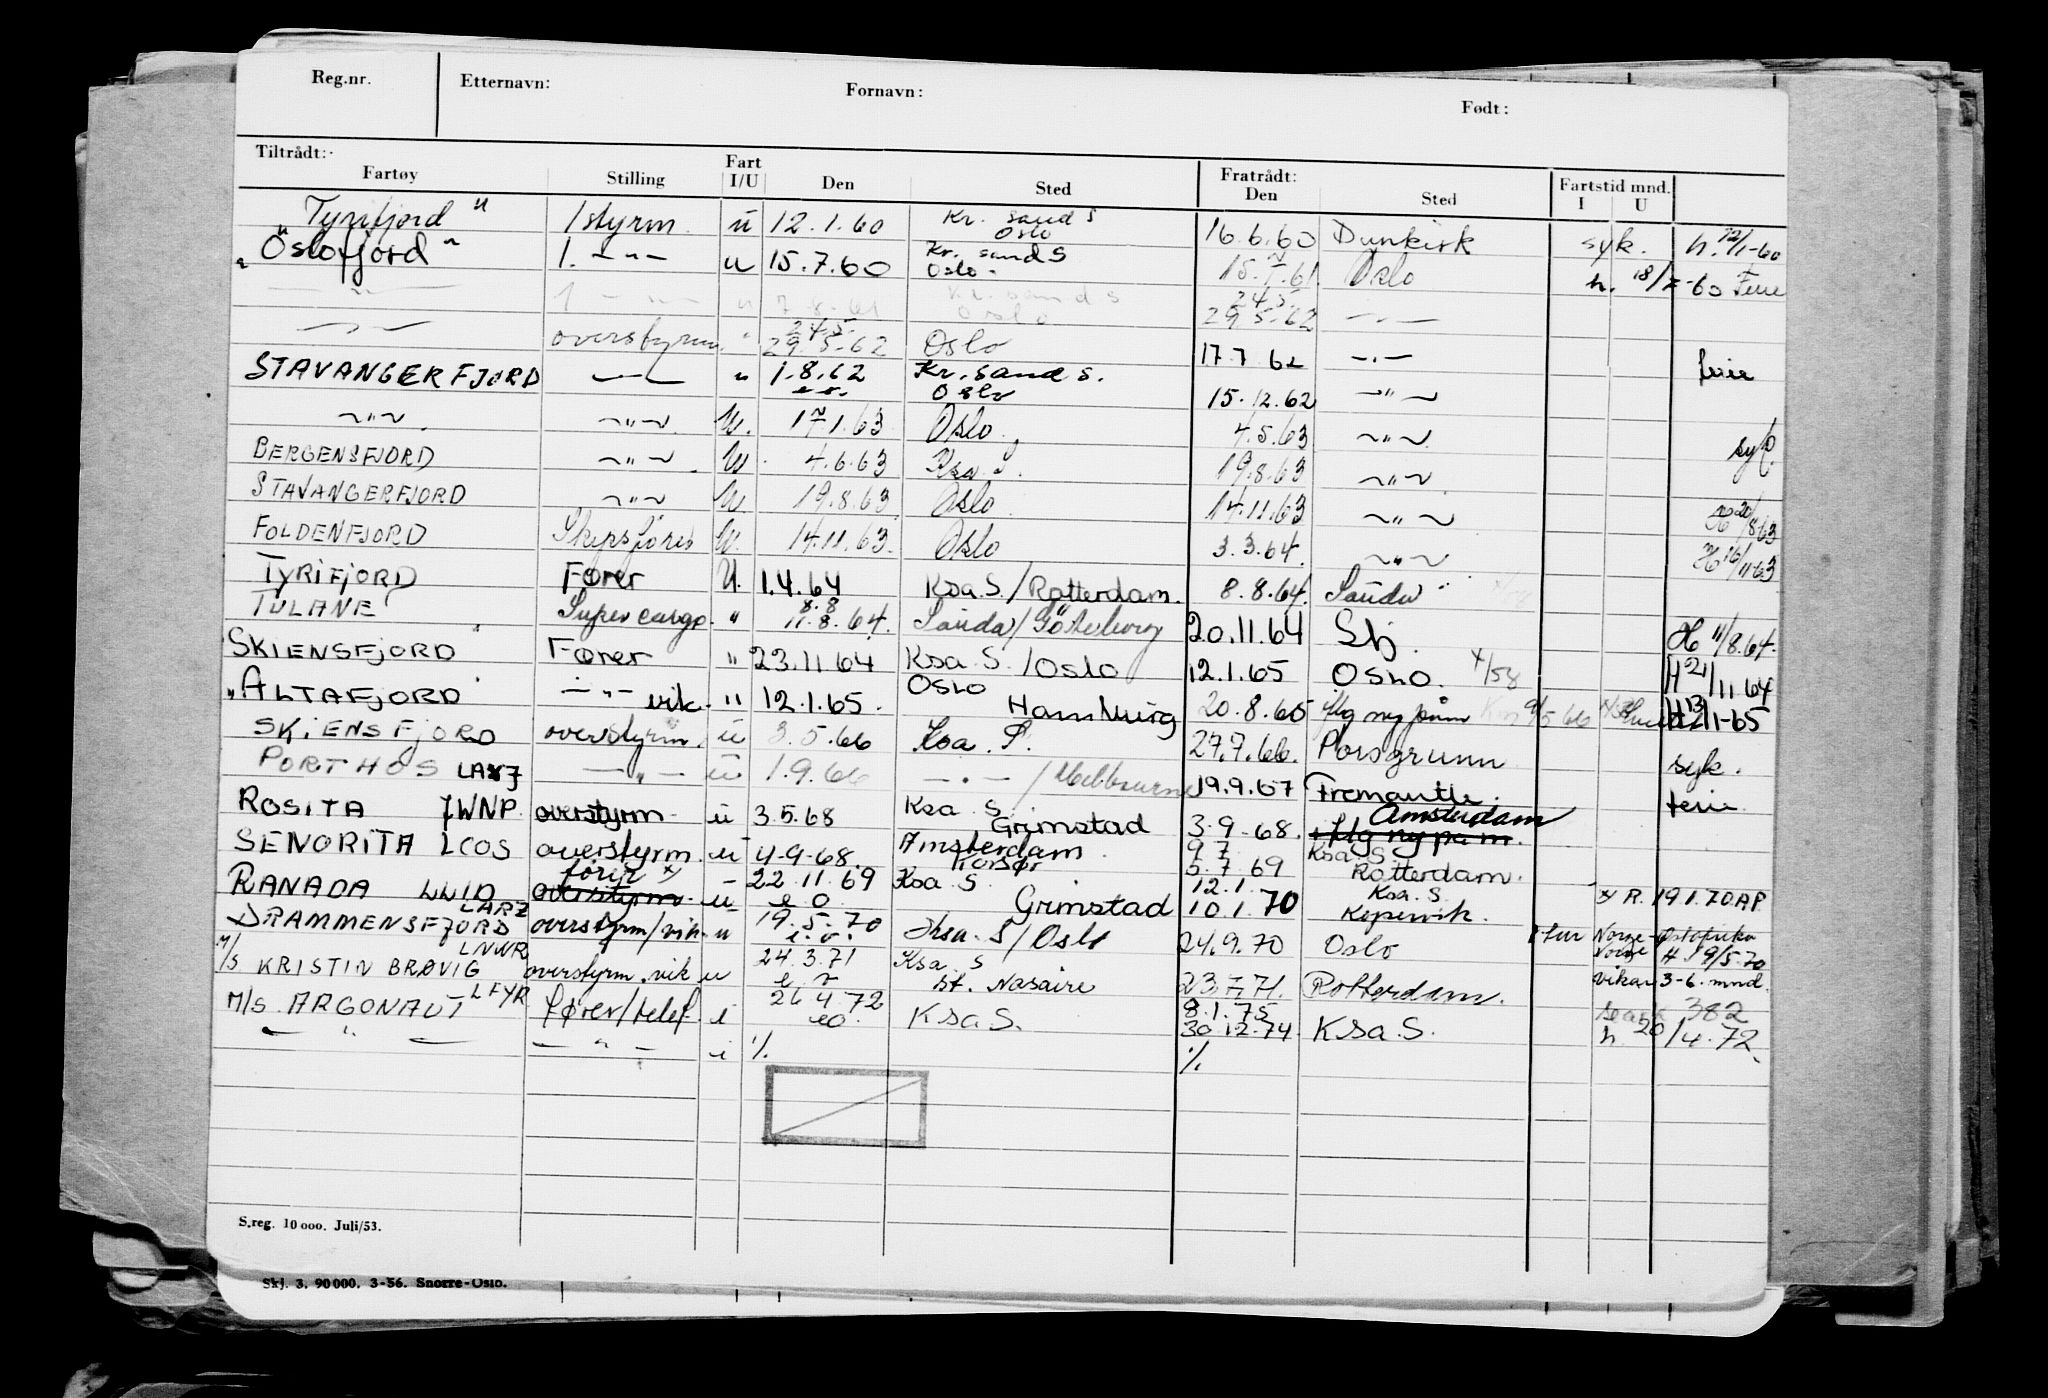 Reg.nr. Etternavn: Fornavn: Født:
Tiltrådt: Fartøy Stilling Fart I/U Den Sted Fratrådt: Den Sted Fartstid mnd. I U
Tyrifjord" 1 styrm. u 12.1.60 Kr. sand S Oslo 16.6.60 Dunkirk syk. h. 12/1-60
"Oslofjord" 1. -"- u 15.7.60 Kr. sand S Oslo 15.7.61. Oslo h. 18/7-60 Ferie
-"- 1 -"- u 7.8.61 Kr. sand S Oslo 24.5. 29.5.62 -"-
-"- overstyrm. " 24.5. 29.5.62 Oslo 17.7.62 -"- ferie
STAVANGERFJORD -"- " 1.8.62 e.o. Kr. sand S. Oslo 15.12.62 -"-
-"- -"- U. 17.1.63 Oslo 4.5.63 -"- syk.
BERGENSFJORD -"- U. 4.6.63 Ksa. S. 19.8.63 -"-
STAVANGERFJORD -"- U. 19.8.63 Oslo 14.11.63 -"- H 20/8.63
FOLDENFJORD Skipsfører U. 14.11.63. Oslo 3.3.64. -"- H 16/11-63
TYRIFJORD Fører U. 1.4.64 Ksa. S./Rotterdam. 8.8.64. Sauda
TULANE Super cargo. " 8.8 11.8.64. Sauda/Göteborg 20.11.64 Stj. H 11/8.64.
SKIENSFJORD Fører " 23.11.64 Ksa. S./Oslo 12.1.65 OSLO. x/58 H 21/11 64
"ALTAFJORD" -"- vik. " 12.1.65. OSLO Hamburg 20.8.65 iflg ny påm 9/5 66 H 13/1-65
SKIENSFJORD overstyrm. u 3.5.66 Ksa. S. 27.7.66. Porsgrunn syk.
PORTHOS LAXJ -"- u 1.9.66 -"-/Melbourne 19.9.67 Fremantle. ferie
ROSITA JWNP. overstyrm. u 3.5.68 Ksa S. Grimstad 3-9-68. Amsterdam iflg ny påm.
SENORITA LCOS overstyrm. u 4-9-68. Amsterdam Korsør 9.7 5.7.69 Ksa. S Rotterdam.
RANADA LLID fører x) overstyrm. u 22.11.69 e.o. Ksa. S. Grimstad 12.1. 10.1.70 Ksa. S. Kopervik. x R. 19.1.70.AP
DRAMMENSFJORD LARZ overstyrm/vik. u 19.5.70 e.o. Ksa. S/Oslo 24.9.70 Oslo 1 tur Norge-Østafrika Norge H. 19/5.70
M/S KRISTIN BRØVIG LNWR overstyrm. vik u 24.3.71 e.o. Ksa. S St. Nasaire 23.7.71. Rotterdam. vikar 3-6. mnd.
M/S ARGONAUT LFYR fører/telef. i 26.4.72 eo. Ksa S. 8.1.75 30.12.74. KSa S. 382 h 20/4.72.
-"- -"- i % %
S.reg. 10 000. Juli/53.
Skj. 3. 90 000. 3-56. Snorre-Oslo.